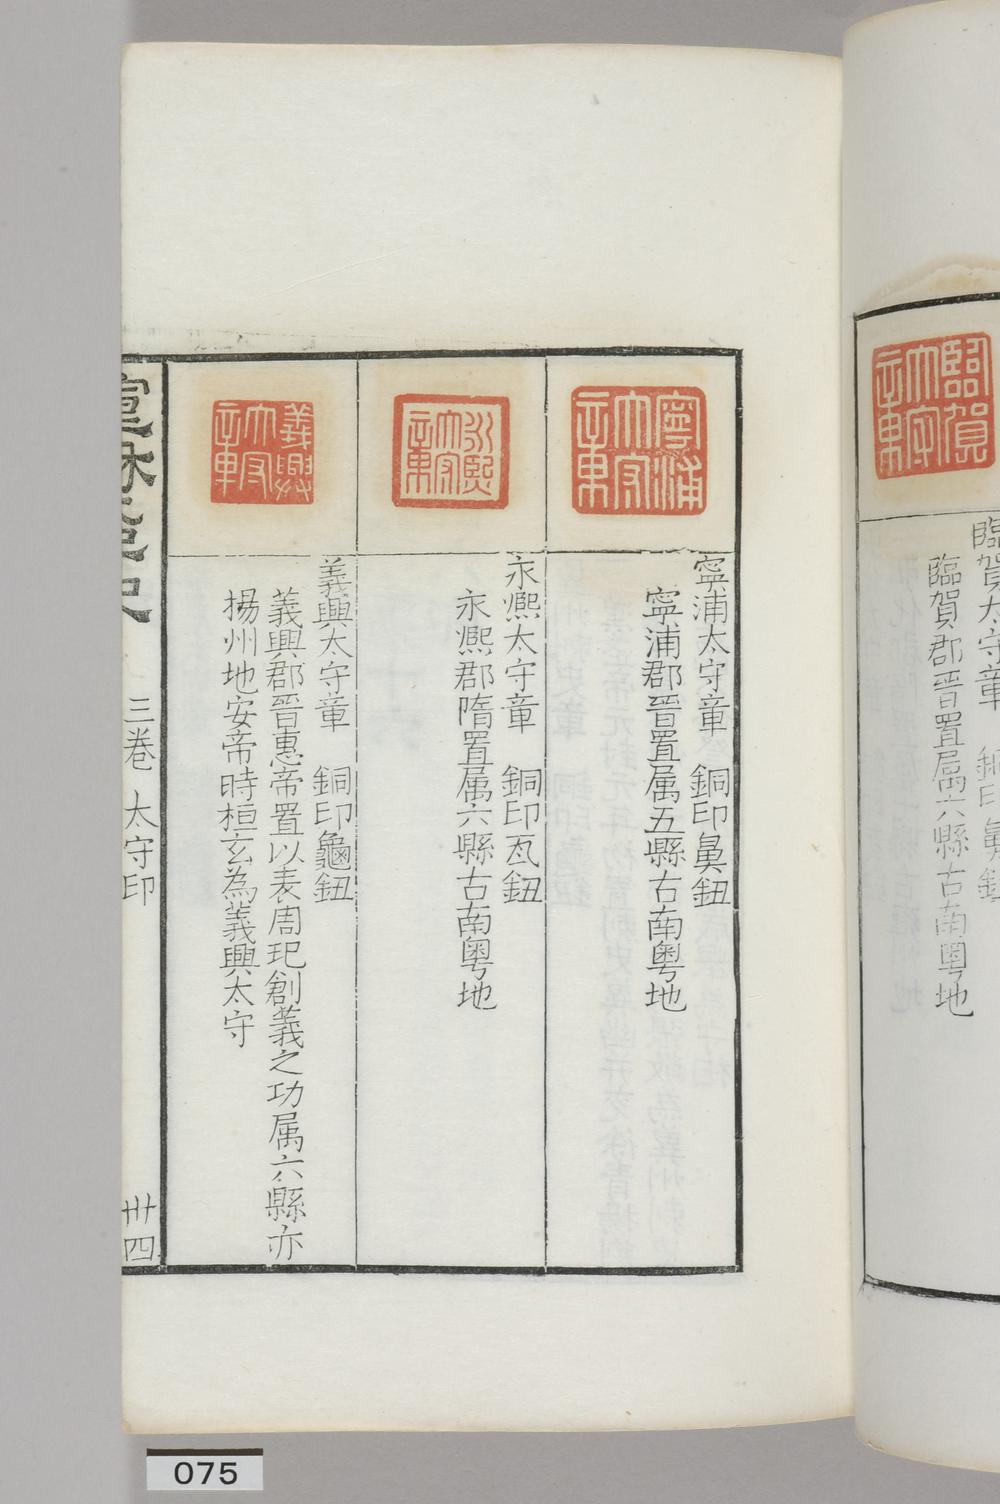 臨賀太守章
臨賀太守章 銅印鼻鈕
臨賀郡晉置属六縣古南粵地
寧浦太守章
寧浦太守章 銅印鼻鈕
寧浦郡晉置属五縣古南粵地
永熙太守章
永熈太守章 銅印瓦鈕
永熈郡隋置属六縣古南粵地
義興太守章
義興太守章 銅印龜鈕
義興郡晉惠帝置以表周玘創義之功属六縣亦
揚州地安帝時桓玄為義興太守
宣龢集古印史 三卷 太守印 卅四
075